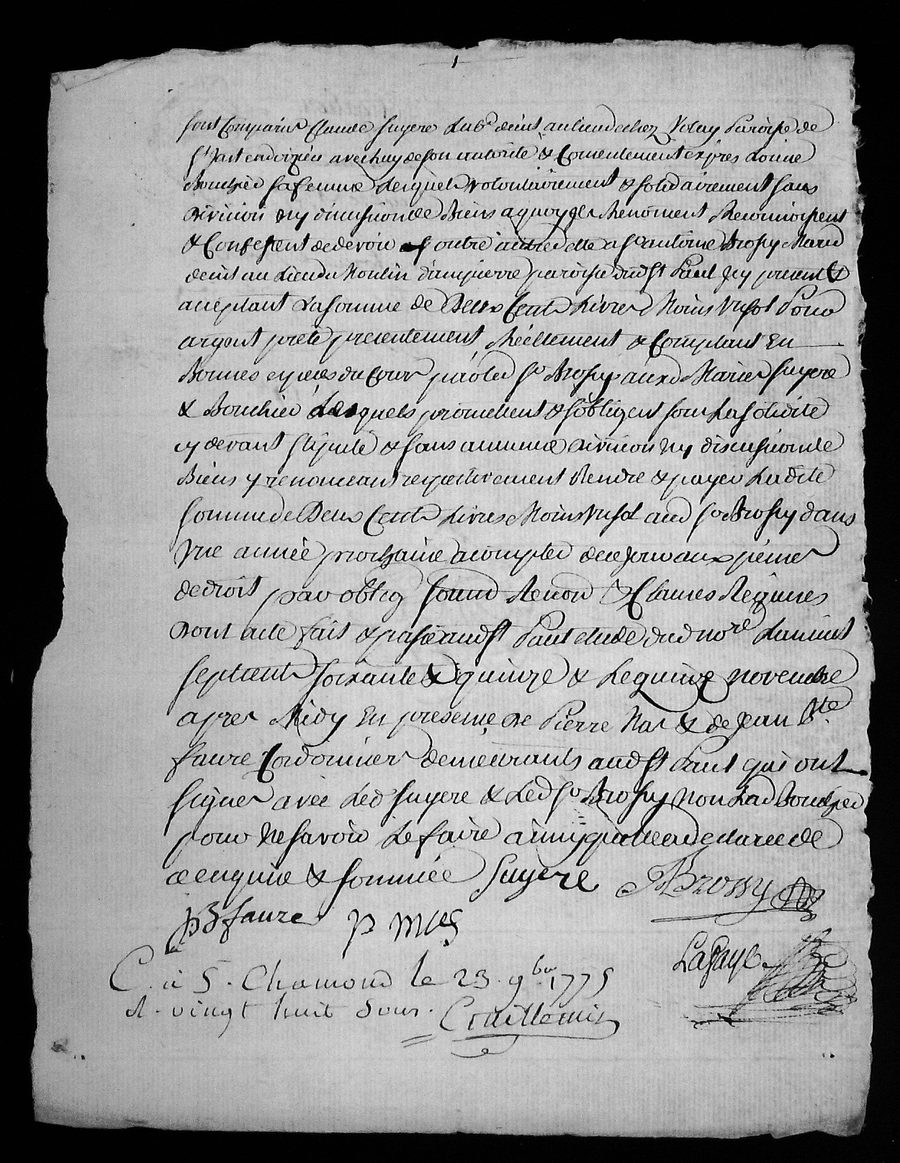 sont comparus Claude Suyere Lab.r deint au lieu de chez Velay Paroisse de
St Just en doizieu avec luy de son autorité & Consentement exprès
Bouchié sa femme lesquels volontairement & solidairement sans
division ny discussion de Biens a quoy ils Renoncent Reconnoissent
& Confessent de devoir outre autre dette a sr antoine Brossy Mard
deint au Lieu du Moulin paroisse dud St Paul icy present &
aceptant La somme de Deux Cents Livres Moins un sol Pour
argent prete presentement Réellement & Comptant En
Bonnes especes du Cour par led sr Brossy auxd Mariés Suyere
& Bouchié Lesquels promettent & s'obligent sous La solidité
cy devant stipulé & sans aucune division ny discussion de
Biens y renonceant respectivement Rendre & payer Ladite
somme de Deux Cents Livres Moins un sol aud sr Brossy dans
une année prochaine a compter de ce jour aux peines
de droit par oblig soumd Renond & Clauses Requises
Dont acte fait & passé aud St Paul etude dud nore L'an mil
sept cents soixante & quinze & Le quinze novembre
apres Midy En presence de Pierre Mas & de Jean Bte
faure Cordonnier demeurants aud St Paul qui ont
signes avec Led Suyere & Led sr Brossy Non Lad Bouchié
pour Ne savoir Le faire ainsy qu'elle a declaree de
ce enquise & sommée Suyere ABrossy
JB faure p mas
Lafaye
C. à S. Chamond le 23. 9bre 1775
R. vingt huit sous.